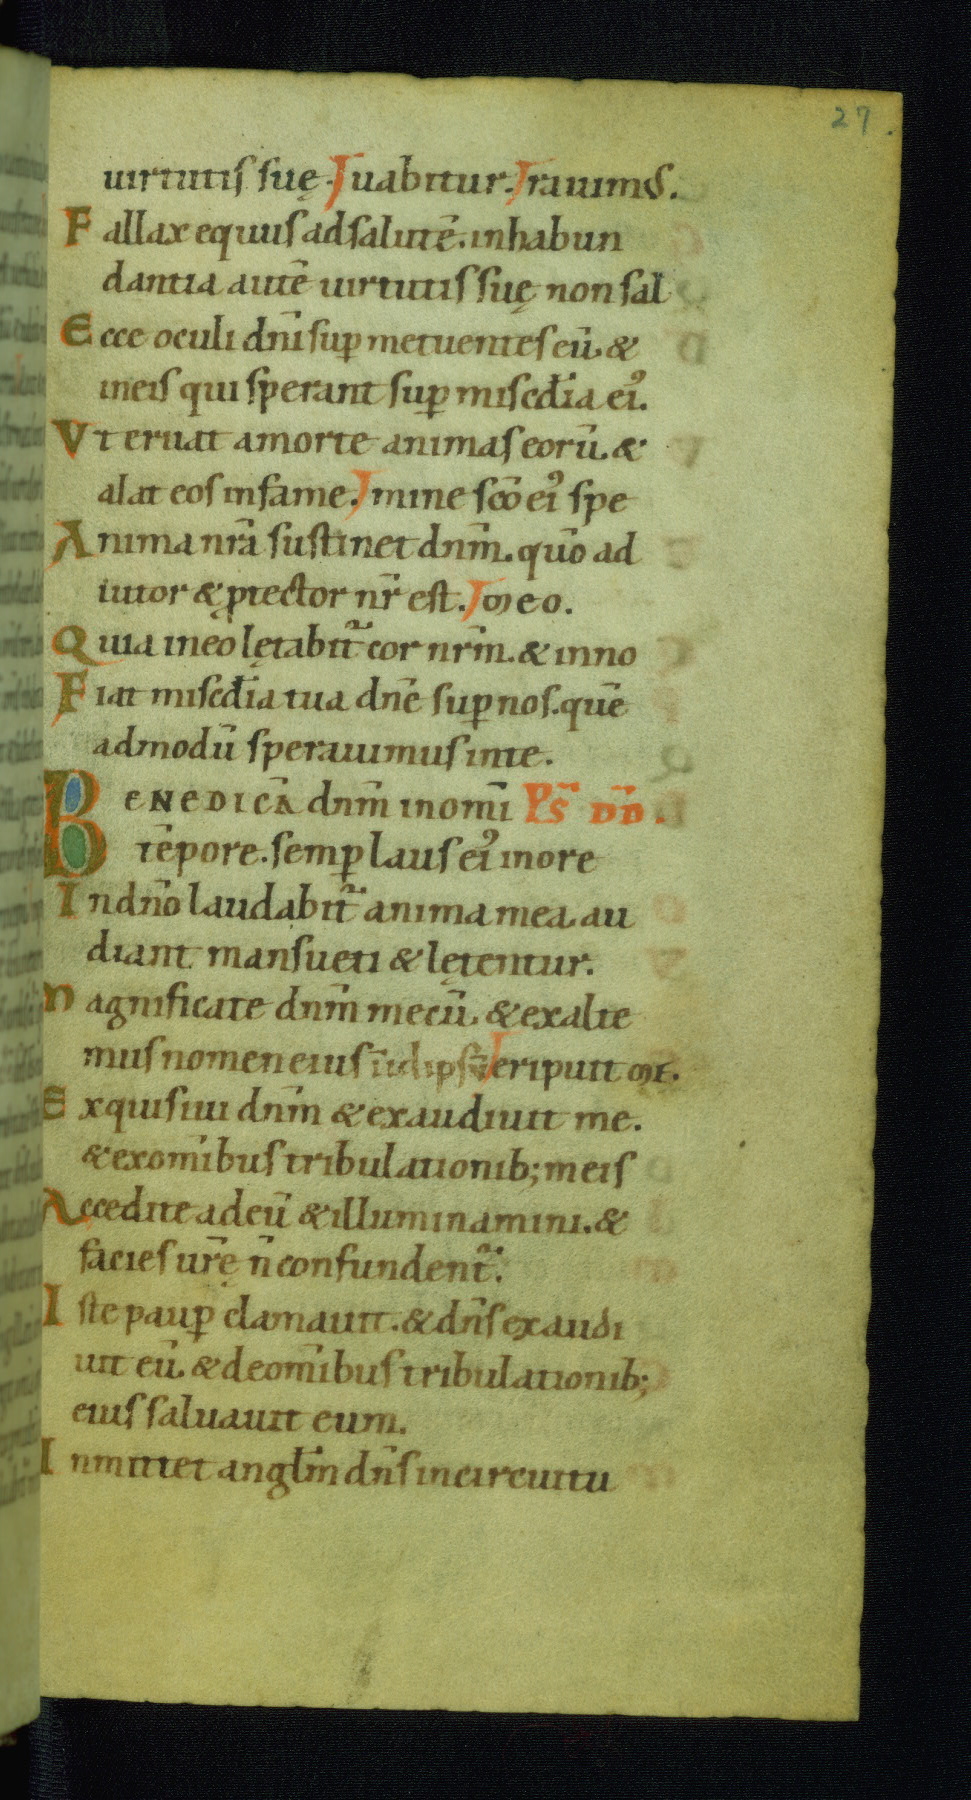 27.
uirtutis suę. ſuabitur. ſrauimus.
Fallax equus ad salutē. in habun
dantia autē uirtutis suę non sal
Ecce oculi dn̄i sup̱ metuentes eū. &
in eis qui sperant sup̱ mis̄c̄dia ei᾿.
Vt eruat a morte animas eorū. &
alat eos in fame. ſmine sc̄o ei᾿ spe
Anima nr̄a sustinet dn̄m. qūo ad
iutor & ꝓtector nr̄ est. ſm eo.
Quia in eo lętabit̄ cor nr̄m. & in no
Fiat mis̄c̄dia tua dn̄e sup̱ nos. quē
admodū sperauimus in te.
BENEDICĀ dn̄m in om̄i PS̄ DD̄.
tēpore. semp̱ laus ei᾿ in ore
In dn̄o laudabit̄ anima mea. au
diant mansueti & lętentur.
Magnificate dn̄m mecū. & exalte
mus nomen eius ī idipsū ſeripuit me.
Exquisiui dn̄m & exaudiuit me.
& ex om̄ibus tribulationib; meis
Accedite ad eū & illuminamini. &
facies ur̄ę n̄ confundent̄.
Iste paup̱ clamauit. & dn̄s exaudi
uit eū. & de om̄ibus tribulationib;
eius saluauit eum.
Inmittet angłm dn̄s in circuitu